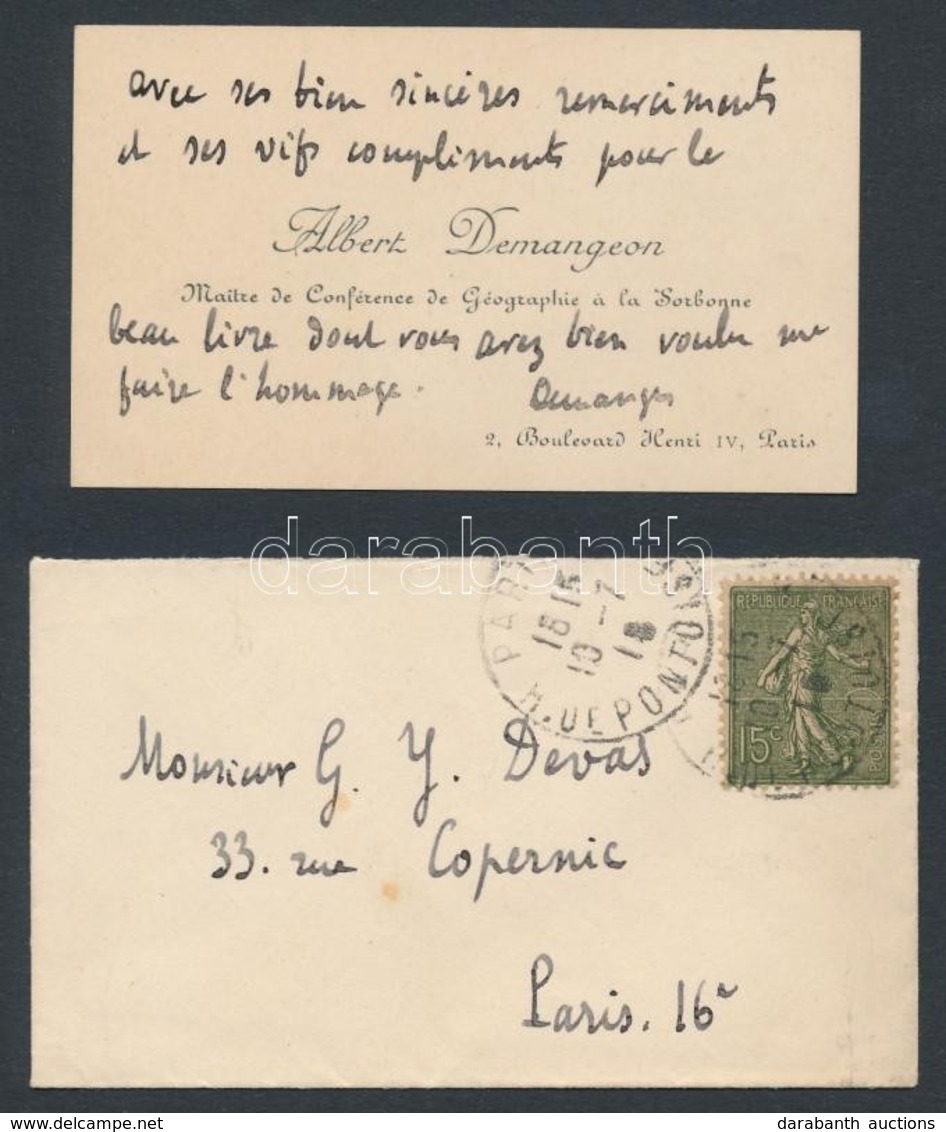 avec ses bien sincères remerciments
et ses vifs compliments pour le
Albert Demangeon
Maître de Conférence de Géographie à la Sorbonne
beau livre dont vous avez bien voulu me
faire l'hommage.
Demangeon
2, Boulevard Henri IV, Paris
darabanth
PARIS
18 15
10 - 7
18
R. DE PONTO
REPUBLIQUE FRANÇAISE
15 c
POSTES
Monsieur G. Y. Devas
33. rue Copernic
Paris. 16e
darabanth auctions